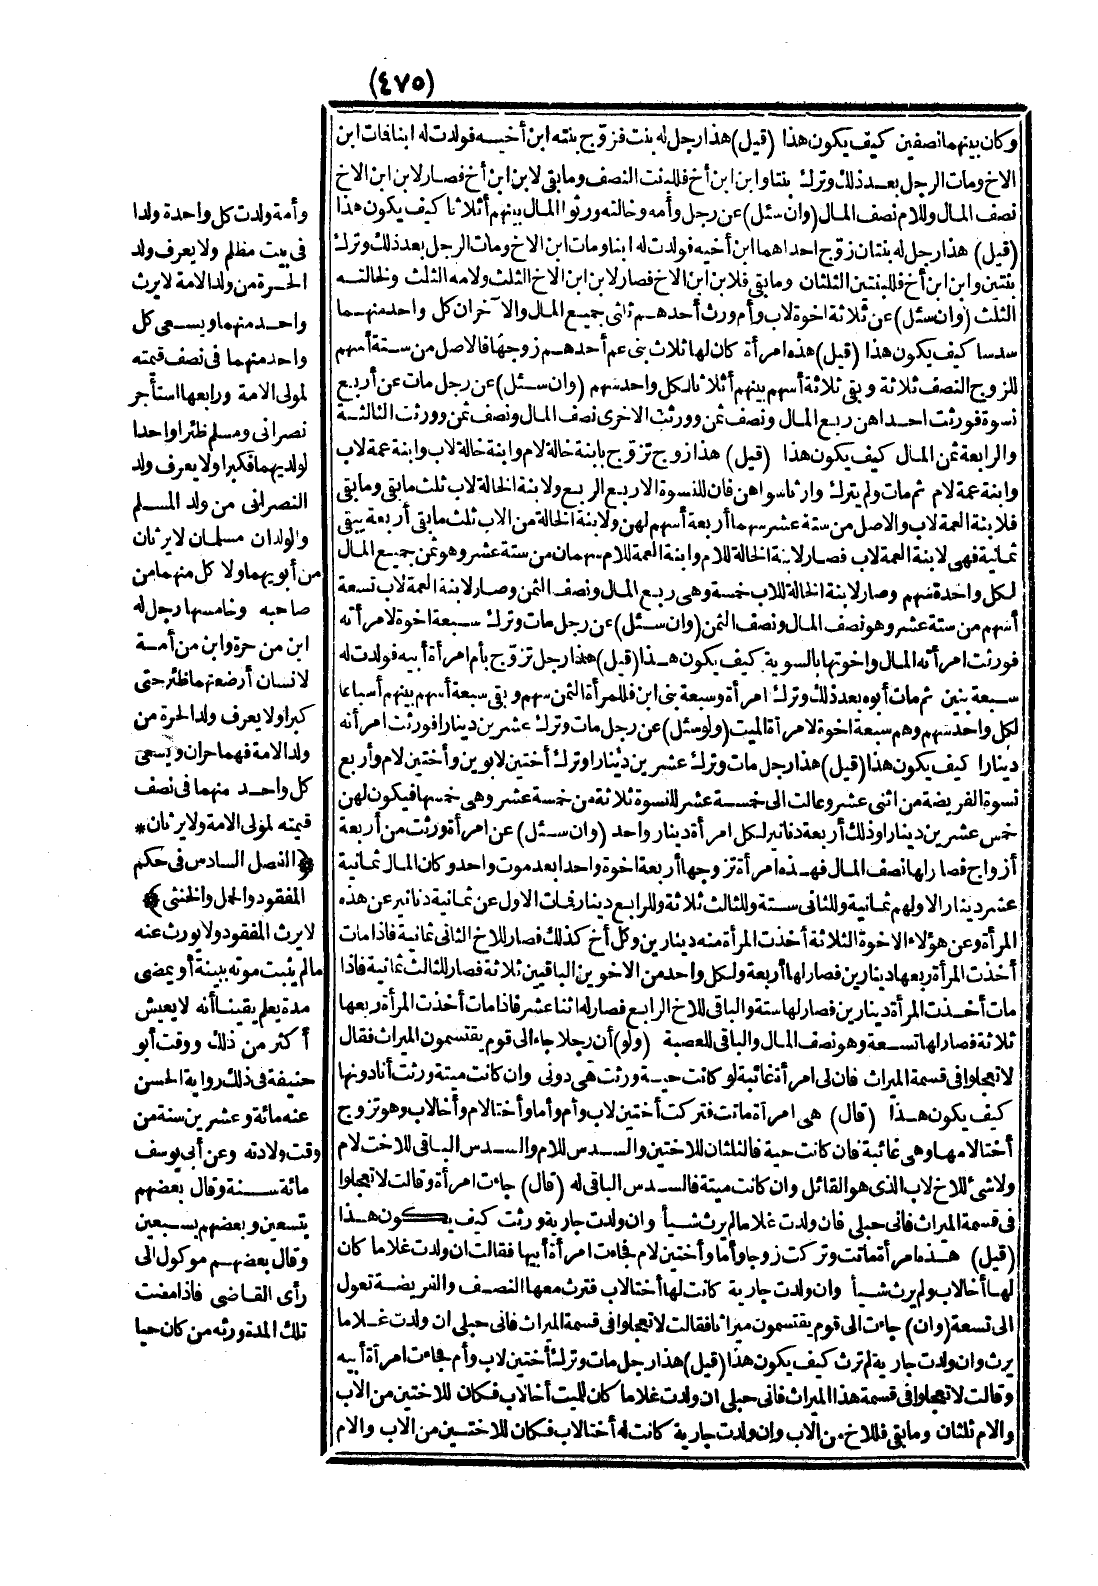 (٤٧٥)
وكان بينهما نصفين كيف يكون هذا (قيل) هذا رجل له بنت فزوّج بنته ابن أخيه فولدت له ابنا فمات ابن
الاخ ومات الرجل بعد ذلك وترك بنتا وابن ابن أخ فللبنت النصف وما بقى لابن ابن أخ فصار لابن ابن الاخ
نصف المال وللام نصف المال (وان سئل) عن رجل وأمه وخالته ورثوا المال بينهم أثلاثا كيف يكون هذا
(قيل) هذا رجل له بنتان زوّج احداهما ابن أخيه فولدت له ابنا ومات ابن الاخ ومات الرجل بعد ذلك وترك
بنتين وابن ابن أخ فللبنتين الثلثان وما بقى فلابن ابن الاخ فصار لابن ابن الاخ الثلث ولامه الثلث ولخالته
الثلث (وان سئل) عن ثلاثة اخوة لاب وأم ورث أحدهم ثلثى جميع المال والآخران كل واحد منهما
سدسا كيف يكون هذا (قيل) هذه امرأة كان لها ثلاث بنى عم أحدهم زوجها فالاصل من ستة أسهم
للزوج النصف ثلاثة وبقى ثلاثة أسهم بينهم أثلاثا لكل واحد سهم (وان سئل) عن رجل مات عن أربع
نسوة فورثت احداهن ربع المال ونصف ثمن وورثت الاخرى نصف المال ونصف ثمن وورثت الثالثة
والرابعة ثمن المال كيف يكون هذا (قيل) هذا زوج تزوّج بابنة خالة لام وابنة خالة لاب وابنة عمة لاب
وابنة عمة لام ثم مات ولم يترك وارثا سواهن فان للنسوة الاربع الربع ولابنة الخالة لاب ثلث ما بقى وما بقى
فلابنة العمة لاب والاصل من ستة عشر سهما أربعة أسهم لهن ولابنة الخالة من الاب ثلث ما بقى أربعة يبقى
ثمانية فهى لابنة العمة لاب فصار لابنة الخالة للام وابنة العمة للام سهمان من ستة عشر وهو ثمن جميع المال
لكل واحدة سهم وصار لابنة الخالة للاب خمسة وهى ربع المال ونصف الثمن وصار لابنة العمة لاب تسعة
أسهم من ستة عشر وهو نصف المال ونصف الثمن (وان سئل) عن رجل مات وترك سبعة اخوة لامرأته
فورثت امرأته المال واخوتها بالسوية كيف يكون هذا (قيل) هذا رجل تزوّج بأم امرأة أبيه فولدت له
سبعة بنين ثم مات أبوه بعد ذلك وترك امرأة وسبعة بنى ابن فللمرأة الثمن سهم وبقى سبعة أسهم بينهم أسباعا
لكل واحد سهم وهم سبعة اخوة لامرأة الميت (ولو سئل) عن رجل مات وترك عشرين دينارا فورثت امرأته
دينارا كيف يكون هذا (قيل) هذا رجل مات وترك عشرين دينارا وترك أختين لابوين وأختين لام وأربع
نسوة الفريضة من اثنى عشر وعالت الى خمسة عشر للنسوة ثلاثة من خمسة عشر وهى خمسها فيكون لهن
خمس عشرين دينارا وذلك أربعة دنانير لكل امرأة دينار واحد (وان سئل) عن امرأة ورثت من أربعة
أزواج فصار لها نصف المال فهذه امرأة تزوجها أربعة اخوة واحدا بعد موت واحد وكان المال ثمانية
عشر دينار الاولهم ثمانية وللثانى ستة وللثالث ثلاثة وللرابع دينار فمات الاول عن ثمانية دنانير عن هذه
المرأة وعن هؤلاء الاخوة الثلاثة أخذت المرأة منه دينارين وكل أخ كذلك فصار للاخ الثانى ثمانية فاذا مات
أخذت المرأة ربعها دينارين فصار لها أربعة ولكل واحد من الاخوين الباقيين ثلاثة فصار للثالث ثمانية فاذا
مات أخذت المرأة دينارين فصار لها ستة والباقى للاخ الرابع فصار له اثنا عشر فاذا مات أخذت المرأة ربعها
ثلاثة فصار لها تسعة وهو نصف المال والباقى للعصبة (ولو) أن رجلا جاء الى قوم يقتسمون الميراث فقال
لا تعجلوا فى قسمة الميراث فان لى امرأة غائبة لو كانت حية ورثت هى دونى وان كانت ميتة ورثت أنا دونها
كيف يكون هذا (قال) هى امرأة ماتت فتركت أختين لاب وأم وأما وأختا لام وأخا لاب وهو تزوّج
أختا لامها وهى غائبة فان كانت حية فالثلثان للاختين والسدس للام والسدس الباقى للاخت لام
ولا شئ للاخ لاب الذى هو القائل وان كانت ميتة فالسدس الباقى له (قال) جاءت امرأة وقالت لا تعجلوا
فى قسمة الميراث فانى حبلى فان ولدت غلاما لم يرث شيأ وان ولدت جارية ورثت كيف يكون هذا
(قيل) هذه امرأة ماتت وتركت زوجا وأما وأختين لام فجاءت امرأة أبيها فقالت ان ولدت غلاما كان
لها أخا لاب ولم يرث شيأ وان ولدت جارية كانت لها أختا لاب فترث معها النصف والفريضة تعول
الى تسعة (وان) جاءت الى قوم يقتسمون ميراثا فقالت لا تعجلوا فى قسمة الميراث فانى حبلى ان ولدت غلاما
يرث وان ولدت جارية لم ترث كيف يكون هذا (قيل) هذا رجل مات وترك أختين لاب وأم فجاءت امرأة أبيه
وقالت لا تعجلوا فى قسمة هذا الميراث فانى حبلى ان ولدت غلاما كان للميت أخا لاب فكان للاختين من الاب
والام ثلثان وما بقى فللاخ من الاب وان ولدت جارية كانت له أختا لاب فكان للاختين من الاب والام
وأمة ولدت كل واحدة ولدا
فى بيت مظلم ولا يعرف ولد
الحرة من ولد الامة لا يرث
واحد منهما ويسعى كل
واحد منهما فى نصف قيمته
لمولى الامة ورابعها استأجر
نصرانى ومسلم ظئرا واحدا
لولديهما فكبرا ولا يعرف ولد
النصرانى من ولد المسلم
والولدان مسلمان لا يرثان
من أبويهما ولا كل منهما من
صاحبه وخامسها رجل له
ابن من حرة وابن من أمة
لانسان أرضعتهما ظئر حتى
كبرا ولا يعرف ولد الحرة من
ولد الامة فهما حران ويسعى
كل واحد منهما فى نصف
قيمته لمولى الامة ولا يرثان*
﴿الفصل السادس فى حكم
المفقود والحمل والخنثى﴾
لا يرث المفقود ولا يورث عنه
مالم يثبت موته ببينة أو يمضى
مدة يعلم يقينا أنه لا يعيش
أكثر من ذلك ووقت أبو
حنيفة فى ذلك رواية الحسن
عنه مائة وعشرين سنة من
وقت ولادته وعن أبى يوسف
مائة سنة وقال بعضهم
بتسعين وبعضهم بسبعين
وقال بعضهم موكول الى
رأى القاضى فاذا مضت
تلك المدة ورثه من كان حيا